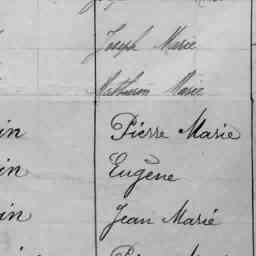 Joseph Marie
Mathurin Marie
in Pierre Marie
in Eugène
in Jean Marie